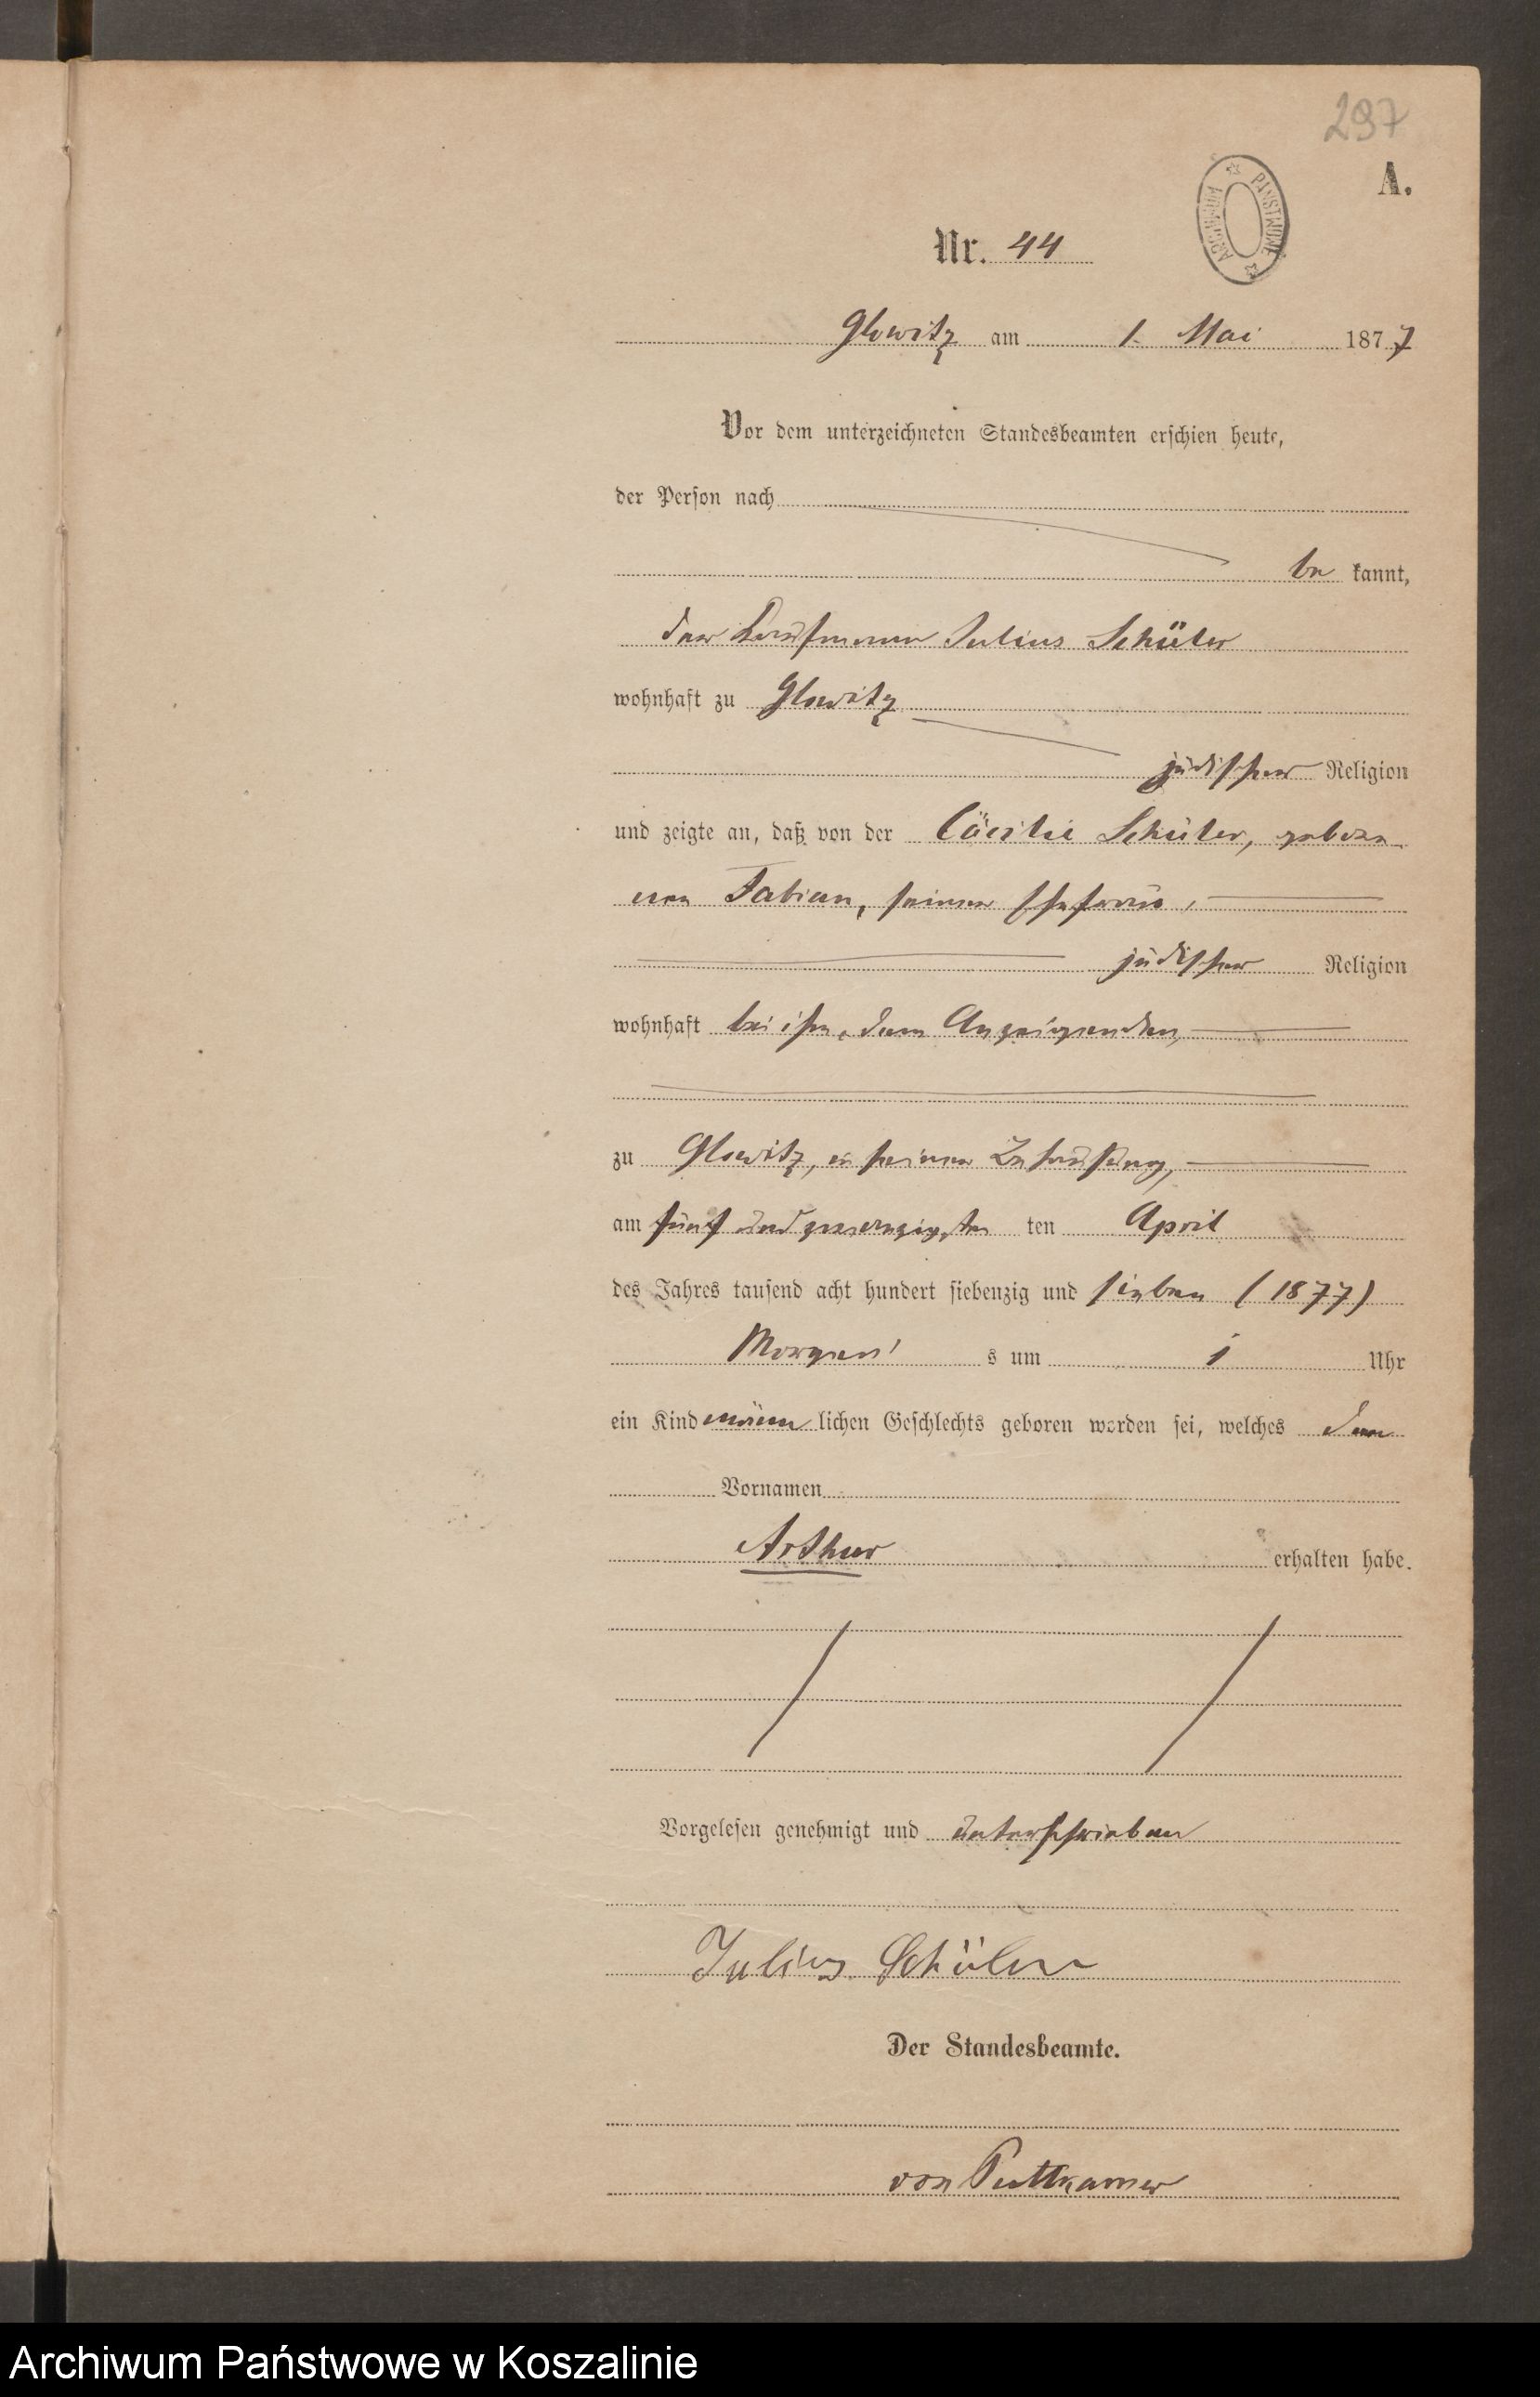 297
A.
ARCHIWUM PAŃSTWOWE
Nr. 44
Glowitz am 1. Mai 1877
Vor dem unterzeichneten Standesbeamten erschien heute,
der Person nach
be kannt,
der Kaufmann Julius Schüler
wohnhaft zu Glowitz
jüdischer Religion
und zeigte an, daß von der Cäcilie Schüler, gebore
nen Fabian, seiner Ehefrau,
jüdischer Religion
wohnhaft bei ihm, dem Anzeigenden,
zu Glowitz, in seiner Behausung,
am fünf und zwanzigsten ten April
des Jahres tausend acht hundert siebenzig und sieben (1877)
Morgens s um 1 Uhr
ein Kind männ lichen Geschlechts geboren worden sei, welches den
Vornamen
Arthur erhalten habe.
Vorgelesen genehmigt und unterschrieben
Julius Schüler
Der Standesbeamte.
von Puttkamer
Archiwum Państwowe w Koszalinie